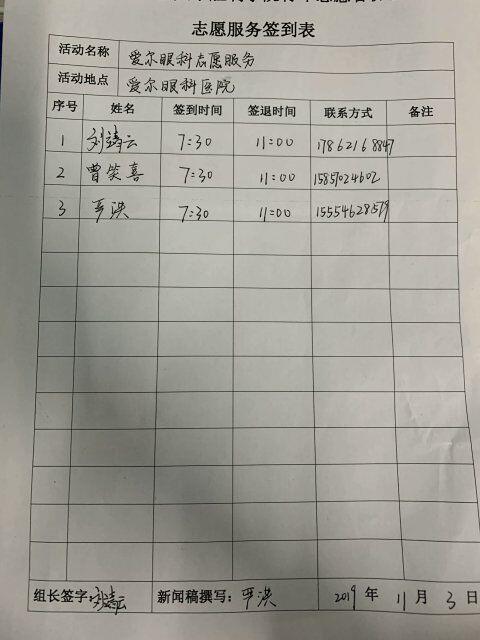 志愿服务签到表
活动名称 爱尔眼科志愿服务
活动地点 爱尔眼科医院
序号 姓名 签到时间 签退时间 联系方式 备注
1 刘 云 7:30 11:00 17862168847
2 曹笑喜 7:30 11:00 15857024602
3 平洪 7:30 11:00 15554628579
组长签字: 新闻稿撰写: 平洪 2019 年 11 月 3 日